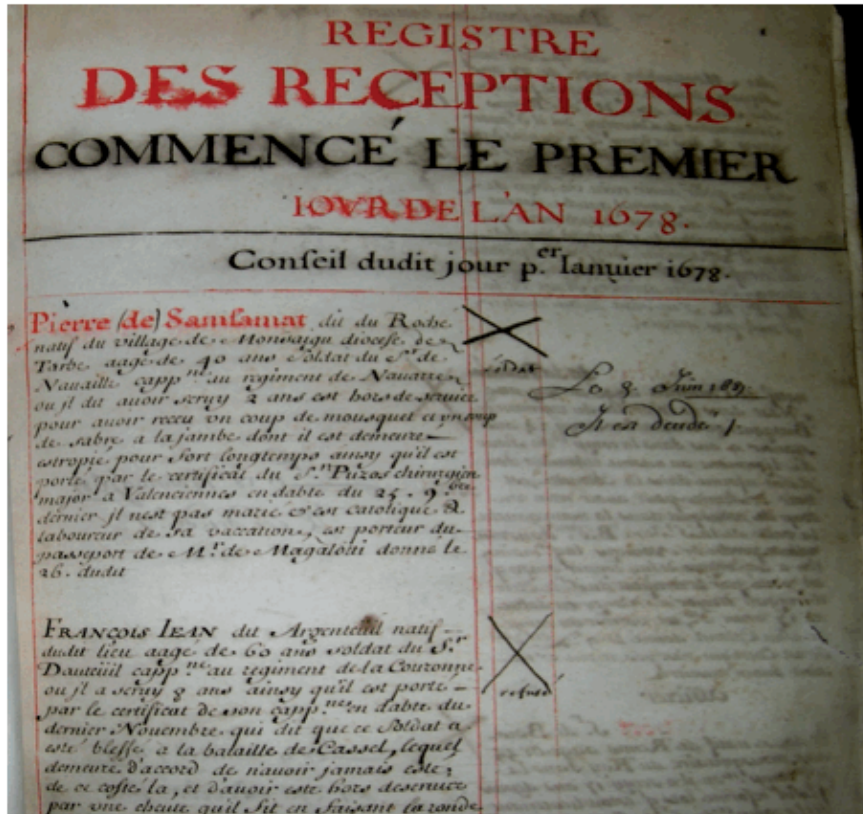 REGISTRE
DES RECEPTIONS
COMMENCÉ LE PREMIER
IOVR DE L'AN 1678.
Conseil dudit jour p.er Ianuier 1678.
Pierre (de) Samsamat dit du Roche
natif du village de Monsaigu diocese de
Tarbe aagé de 40 ans soldat du Sr. de
Nauaille capp.ne au regiment de Nauarre
ou jl dit auoir seruy 2 ans est hors de seruice
pour auoir receu vn coup de mousquet et vn coup
de sabre a la jambe dont il est demeure
estropié pour fort longtemps ainsy qu'il est
porté par le certificat du Sr. Puzos chirurgien
major a Valenciennes en datte du 25. 9.bre
dernier jl nest pas marié est catolique &
laboureur de sa vaccation, est porteur du
passeport de Mr. de Magalotti donné le
26. dudit
Le 8 Juin
Il est decedé
FRANÇOIS IEAN dit Argenteuil natif
dudit lieu aagé de 60 ans soldat du Sr.
Dauteüil capp.ne au regiment de la Couronne
ou jl a seruy 8 ans ainsy qu'il est porté
par le certificat de son capp.ne en datte du
dernier Nouembre qui dit que ce soldat a
esté blessé a la bataille de Cassel, lequel
demeure d'accord de n'auoir jamais esté
de ce costé la, et d'auoir esté hors de seruice
par vne cheute qu'il fit en faisant la ronde
refusé